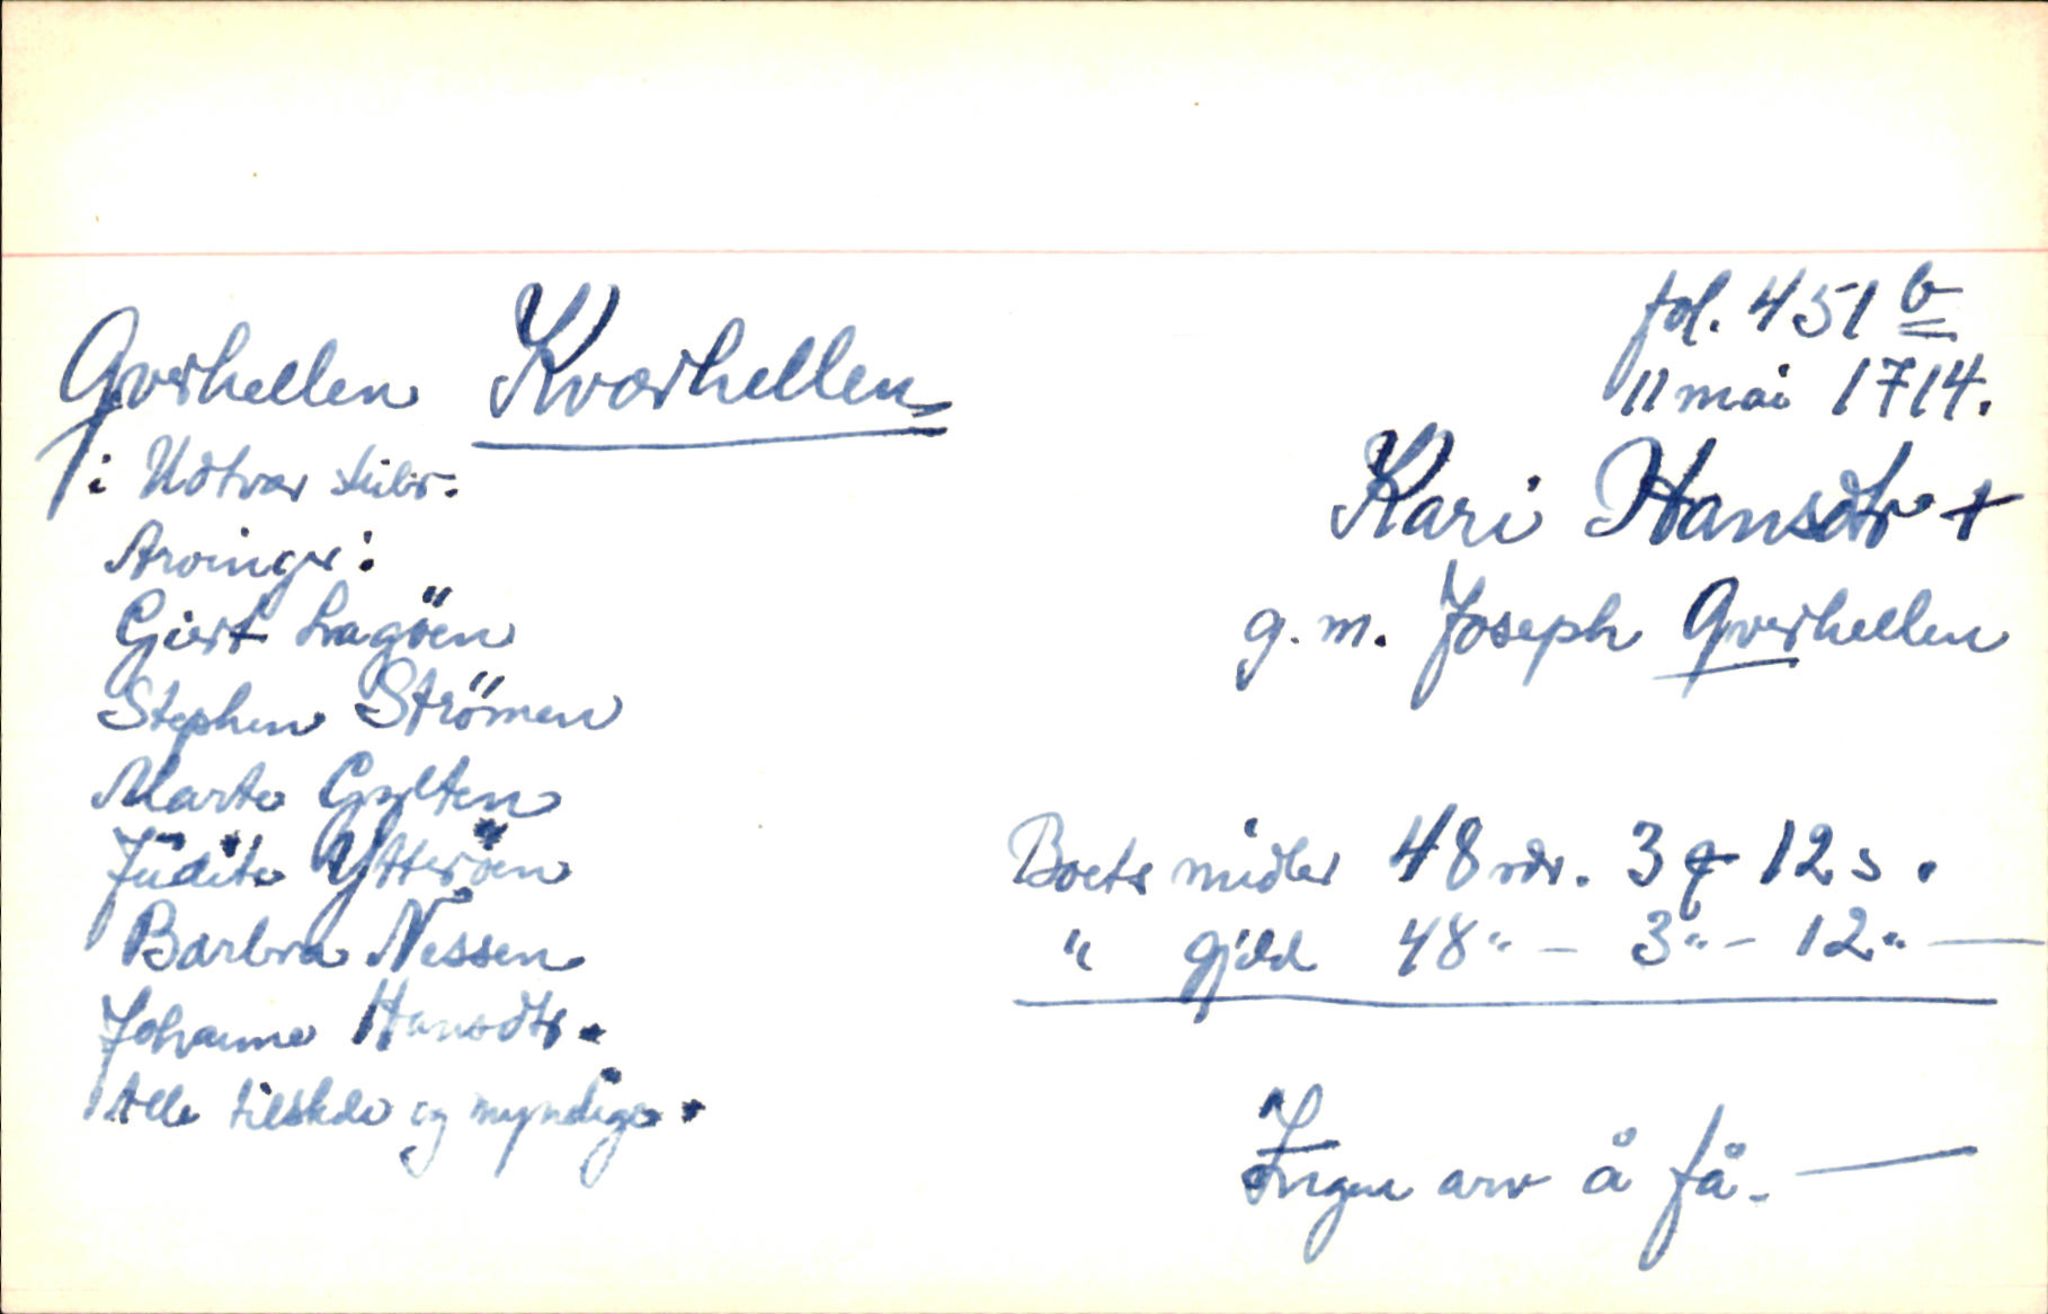 Qverhellen Kværhellen
i Udtvær skibr.
Arvinger:
Giert Lagöen
Stephen Strömen
Marte Gylten
Judite Ytteröen
Barbra Nessen
Johanne Hansdtr.
Alle tilstede og myndige.
fol. 451 b
11 mai 1714.
Kari Hansdtr +
g. m. Joseph Qverhellen
Boets midler 48 rdr. 3 q 12 s.
" gjeld 48 " - 3 " - 12 " —
Ingen arv å få. —